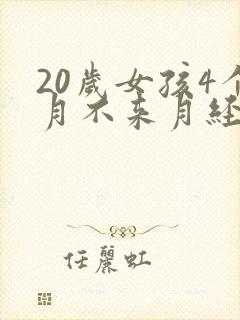 20歲女孩4个
月不来月經
任麗虹